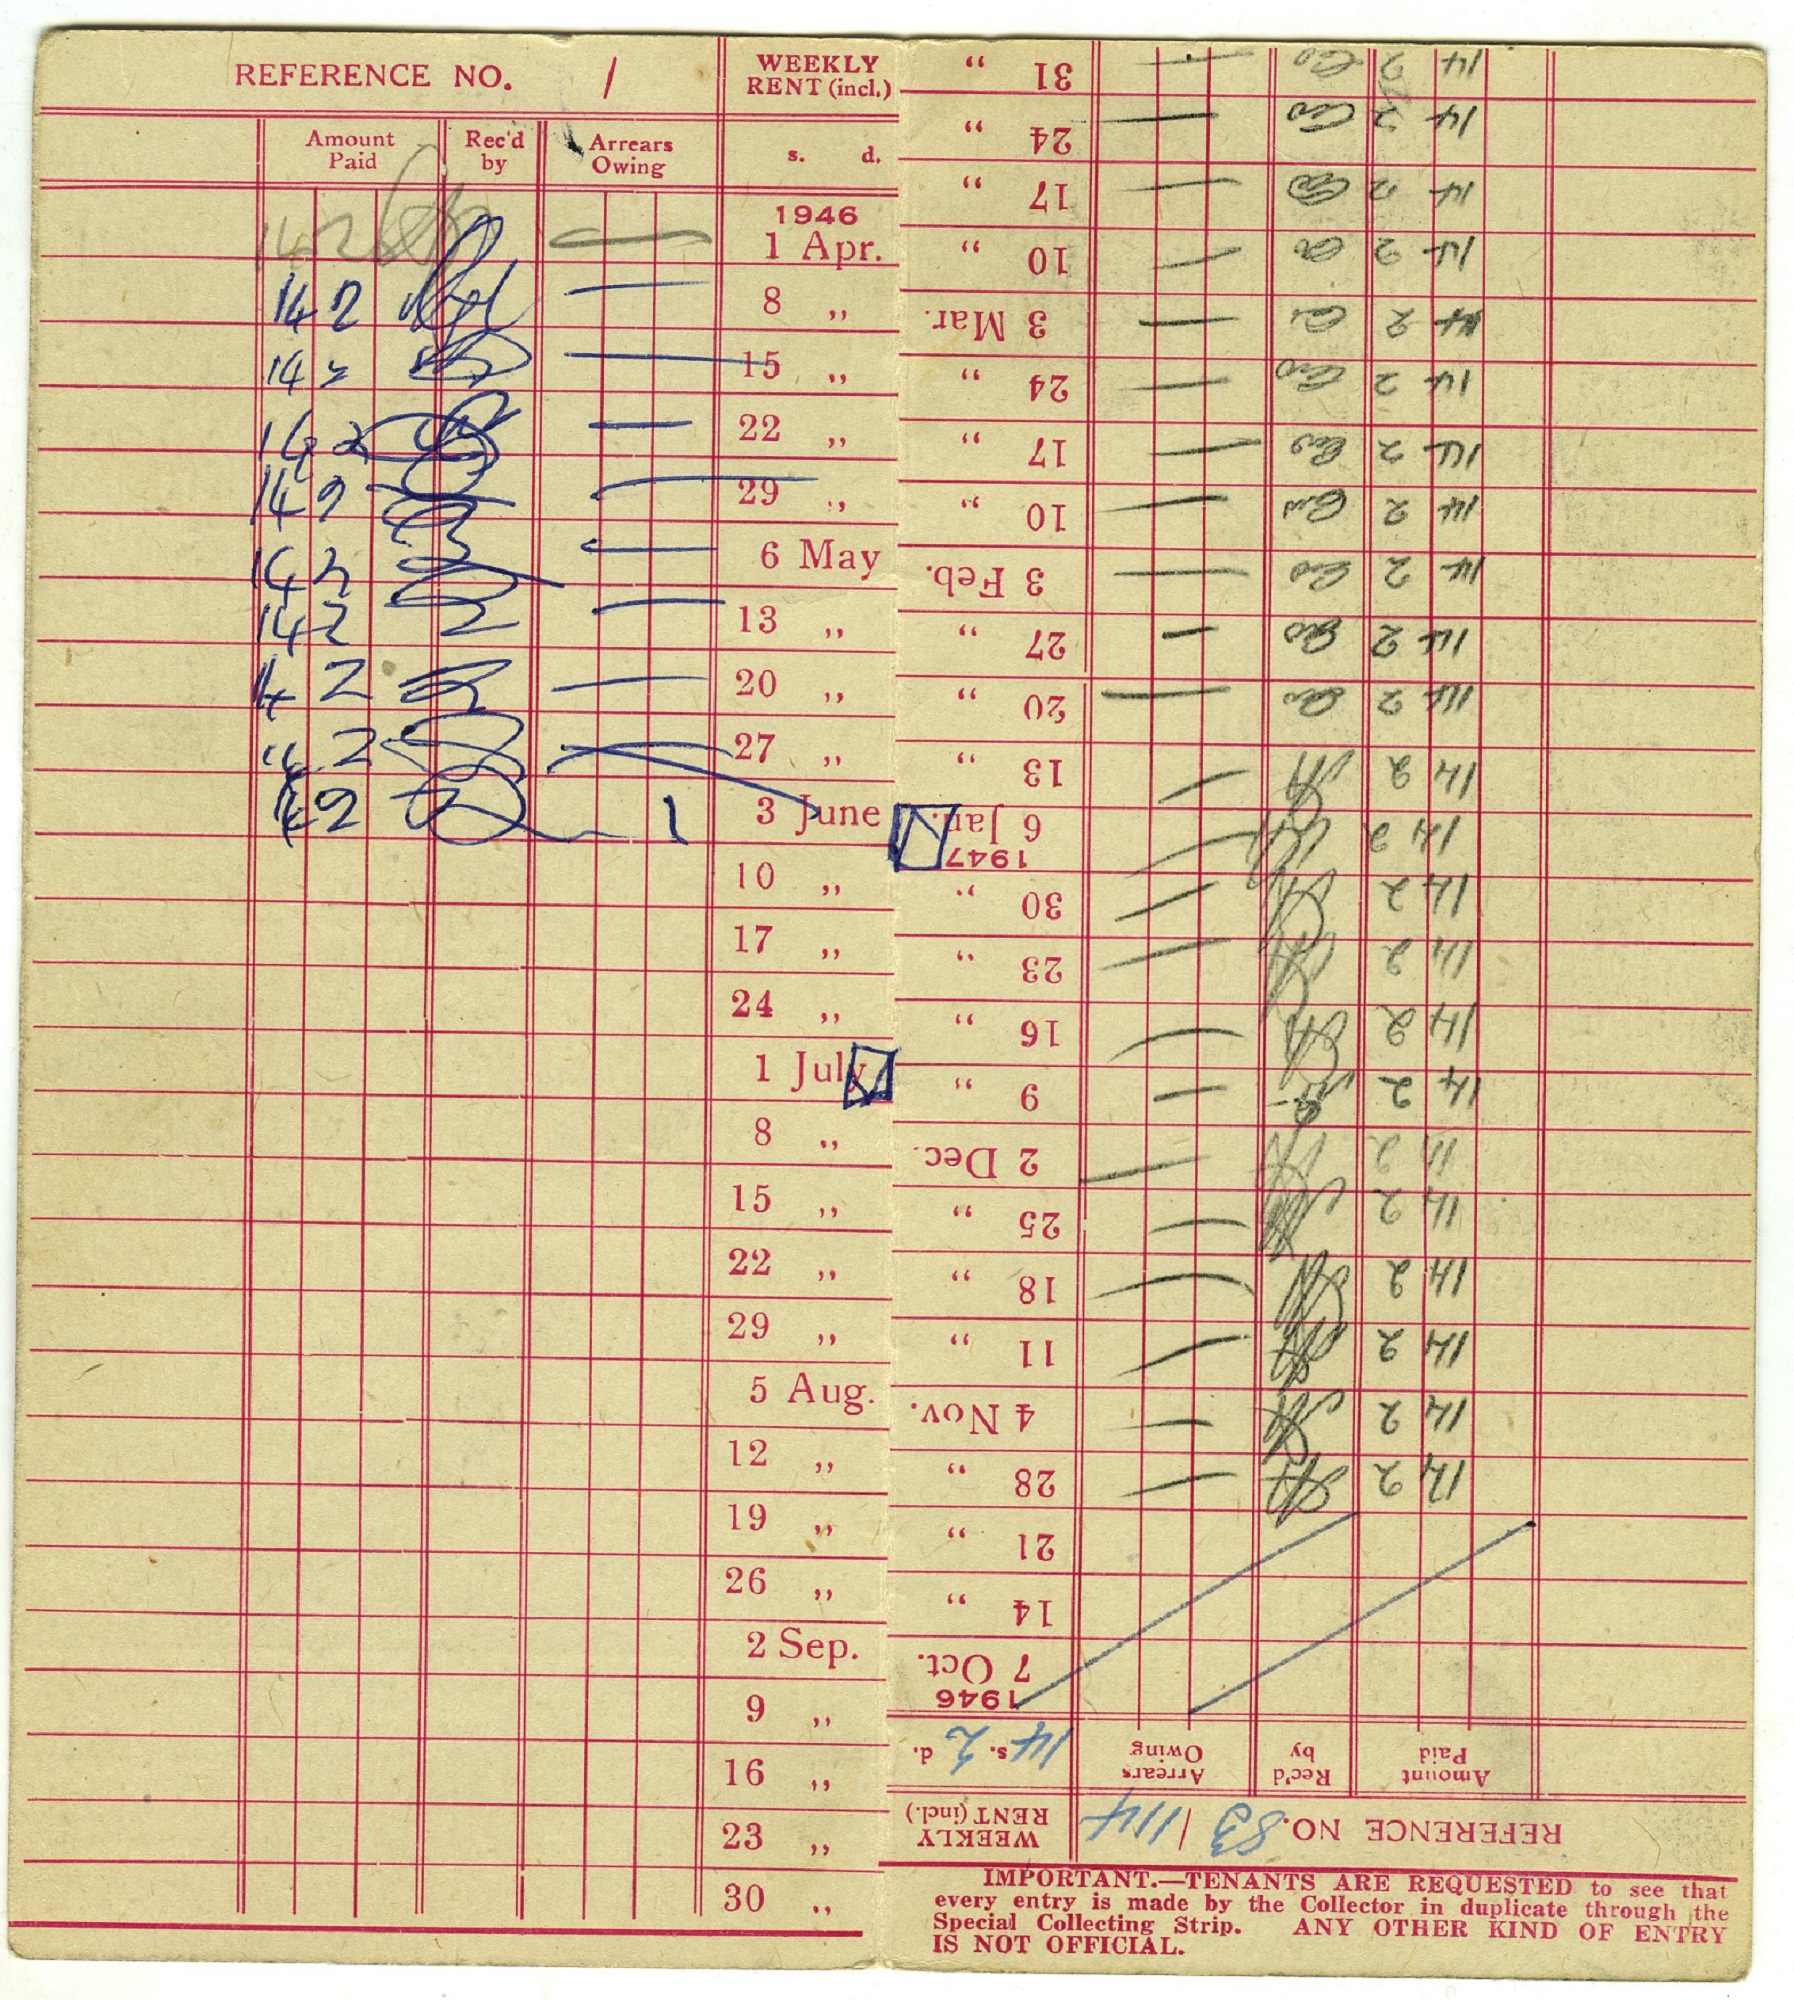 REFERENCE NO. / WEEKLY RENT (incl.)
Amount Paid Rec'd by Arrears Owing s. d.
1946
14 2 — 1 Apr.
14 2 — 8 „
14 2 — 15 „
14 2 — 22 „
14 2 — 29 „
14 2 — 6 May
14 2 — 13 „
14 2 — 20 „
14 2 — 27 „
14 2 3 June
10 „
17 „
24 „
1 July
8 „
15 „
22 „
29 „
5 Aug.
12 „
19 „
26 „
2 Sep.
9 „
16 „
23 „
30 „
REFERENCE NO. 83 / 114 WEEKLY RENT (incl.)
Amount Paid Rec'd by Arrears Owing 14 s. 2 d.
1946
7 Oct.
14 „
21 „
14 2 — 28 „
14 2 — 4 Nov.
14 2 — 11 „
14 2 — 18 „
14 2 — 25 „
14 2 — 2 Dec.
14 2 — 9 „
14 2 — 16 „
14 2 — 23 „
14 2 — 30 „
1947
14 2 — 6 Jan.
14 2 — 13 „
14 2 — 20 „
14 2 — 27 „
14 2 — 3 Feb.
14 2 — 10 „
14 2 — 17 „
14 2 — 24 „
14 2 — 3 Mar.
14 2 — 10 „
14 2 — 17 „
14 2 — 24 „
14 2 — 31 „
IMPORTANT.—TENANTS ARE REQUESTED to see that
every entry is made by the Collector in duplicate through the
Special Collecting Strip. ANY OTHER KIND OF ENTRY
IS NOT OFFICIAL.